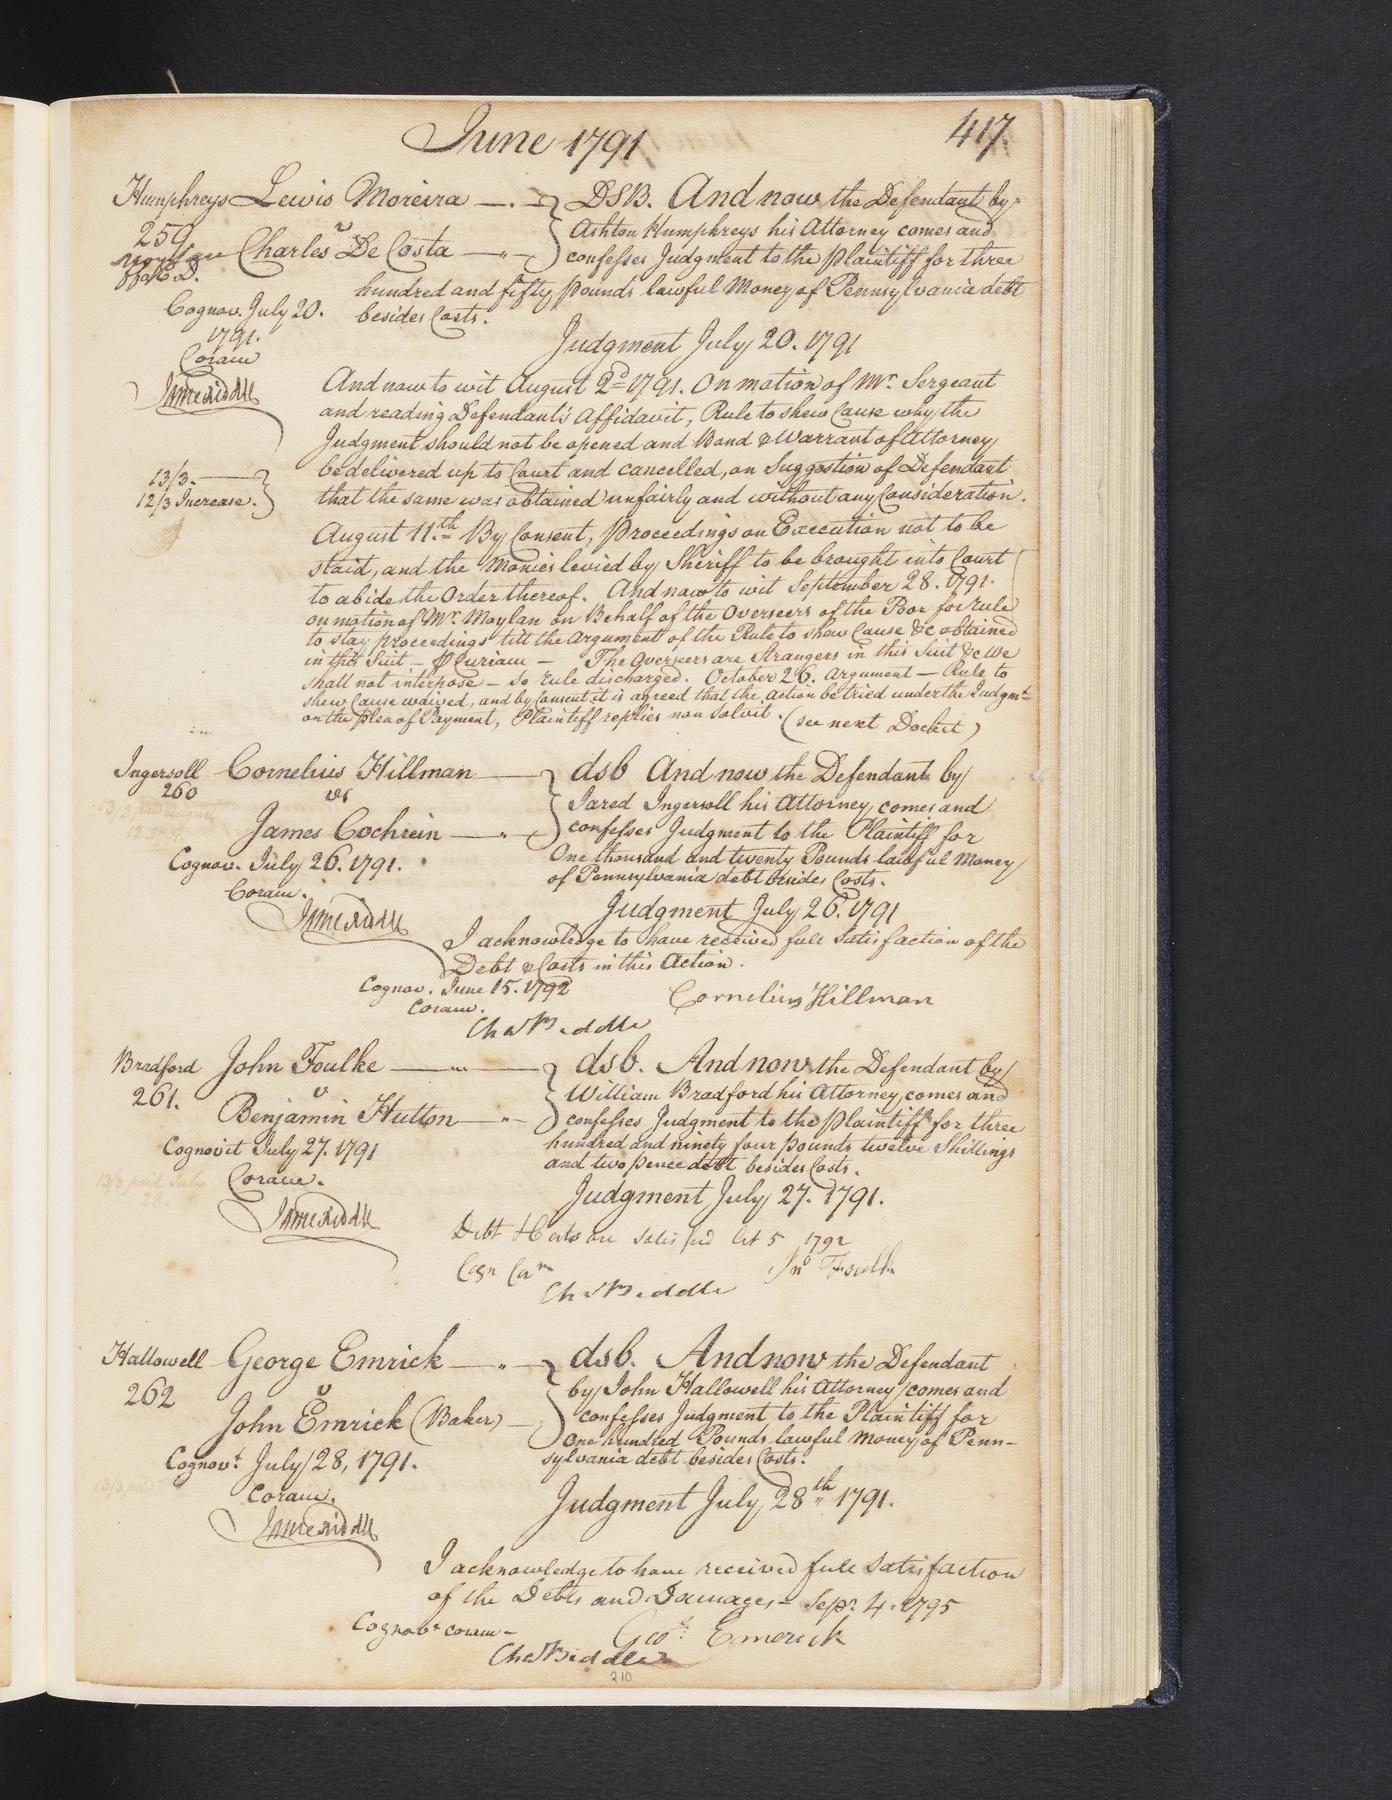 June 1791
417.
Humphreys Lewis Moreira } DSB. And now the Defendant by
259 v Ashton Humphreys his Attorney comes and
Charles De Costa } confesses Judgment to the Plaintiff for three
hundred and fifty Pounds lawful Money of Pennsylvania debt
Cognov. July 20. besides Costs.
1791. Judgment July 20. 1791
Coram
And now to wit August 2d 1791. On motion of Mr. Sergeant
and reading Defendant's Affidavit, Rule to shew Cause why the
Judgment should not be opened and Bond & Warrant of Attorney
13/3. be delivered up to Court and cancelled, on Suggestion of Defendant
12/3 Increase. } that the same was obtained unfairly and without any Consideration.
August 11.th By Consent, Proceedings on Execution not to be
staid, and the Monies levied by Sheriff to be brought into Court
to abide the Order thereof. And now to wit September 28. 1791.
on motion of Mr. Moylan on Behalf of the Overseers of the Poor for rule
to stay proceedings till the Argument of the Rule to shew Cause &c obtained
in this Suit — P Curiam — The Overseers are Strangers in this Suit &c We
shall not interpose — so rule discharged. October 26. Argument — Rule to
shew Cause waived, and by Consent it is agreed that the Action be tried under the Judgmt
on the plea of Payment, Plaintiff replies non Solvit. (see next Docket)
Ingersoll Cornelius Hillman } dsb And now the Defendant by
260 vs Jared Ingersoll his Attorney, comes and
James Cochrein } confesses Judgment to the Plaintiff for
Cognov. July 26. 1791. One thousand and twenty Pounds lawful Money
Coram. of Pennsylvania debt besides Costs.
Judgment July 26. 1791
I acknowledge to have received full Satisfaction of the
Debt & Costs in this Action.
Cognov. June 15. 1792 Cornelius Hillman
Coram.
Chs Biddle
Bradford John Foulke } dsb. And now the Defendant by
261. v William Bradford his Attorney, comes and
Benjamin Hutton } confesses Judgment to the Plaintiff for three
Cognovit July 27. 1791 hundred and ninety four pounds twelve Shillings
13/3 paid July and two pence debt besides Costs.
28. Coram.
Judgment July 27. 1791.
Debt & Costs are satisfied Oct 5 1792
Cogn Corm Jno Foulke
Ch Biddle
Hallowell George Emrick } dsb. And now the Defendant
262 v by John Hallowell his Attorney comes and
John Emrick (Baker) } confesses Judgment to the Plaintiff for
One hundred Pounds lawful Money of Penn-
Cognovt July 28, 1791. sylvania debt besides Costs.
13/3 pd Coram. Judgment July 28th 1791.
I acknowledge to have received full Satisfaction
of the Debts and Damages — Sepr 4. 1795
Cognovt coram — Geo: Emerick
Chs Biddle
210